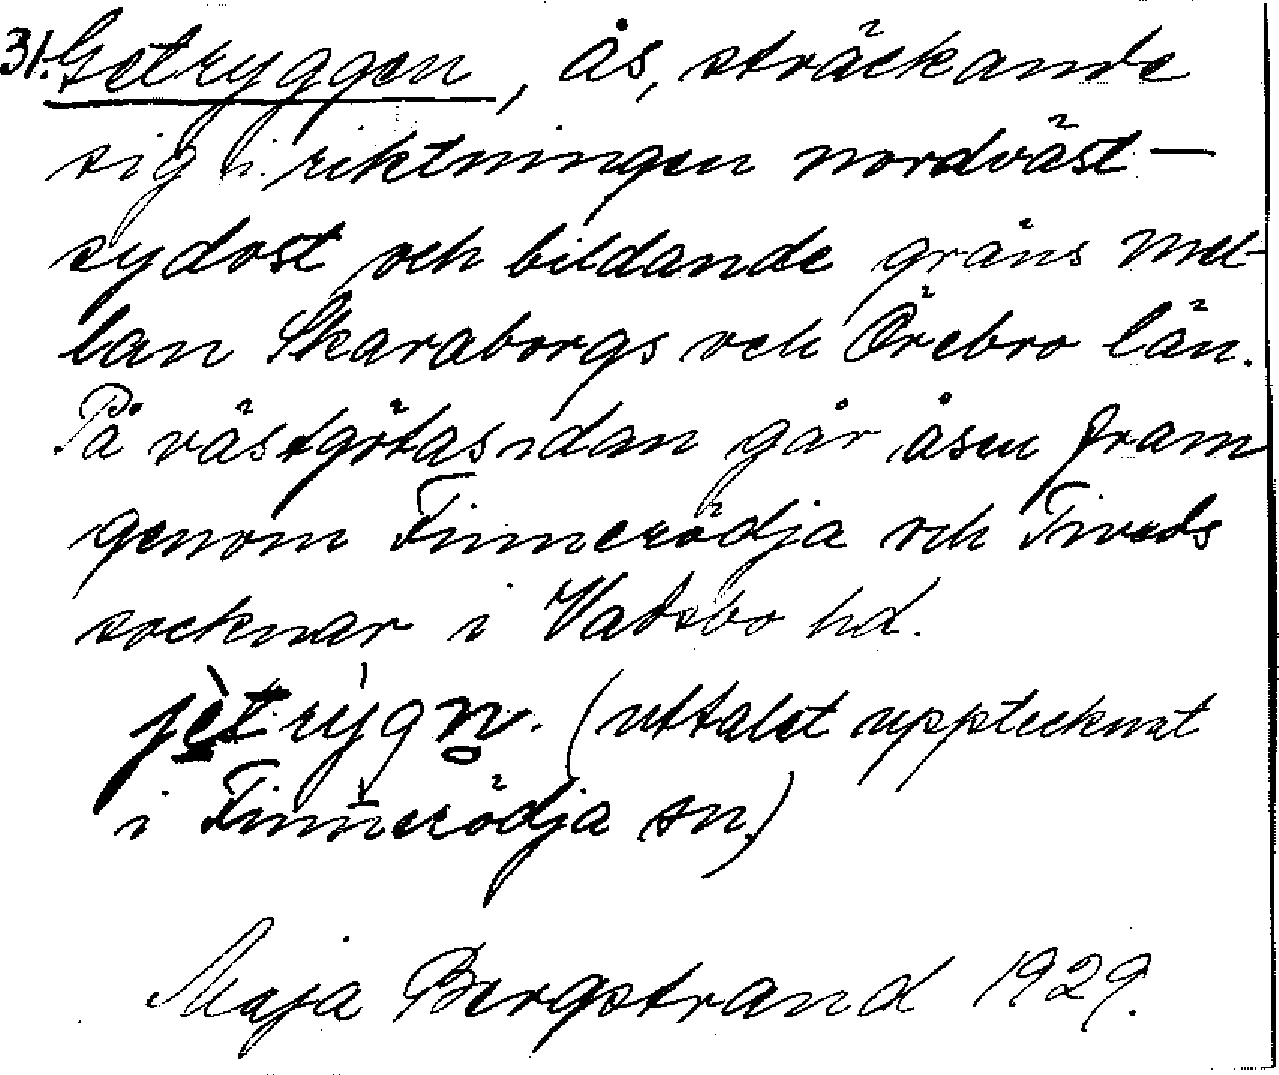 31. Getryggen, ås, sträckande
sig i riktningen nordväst —
sydost och bildande gräns mel-
lan Skaraborgs och Örebro län.
På västgötasidan går åsen fram
genom Finnerödja och Tiveds
socknar i Vadsbo hd.
jètrýgn̥. (uttalet upptecknat
i Finnerödja sn.)
Maja Bergstrand 1929.